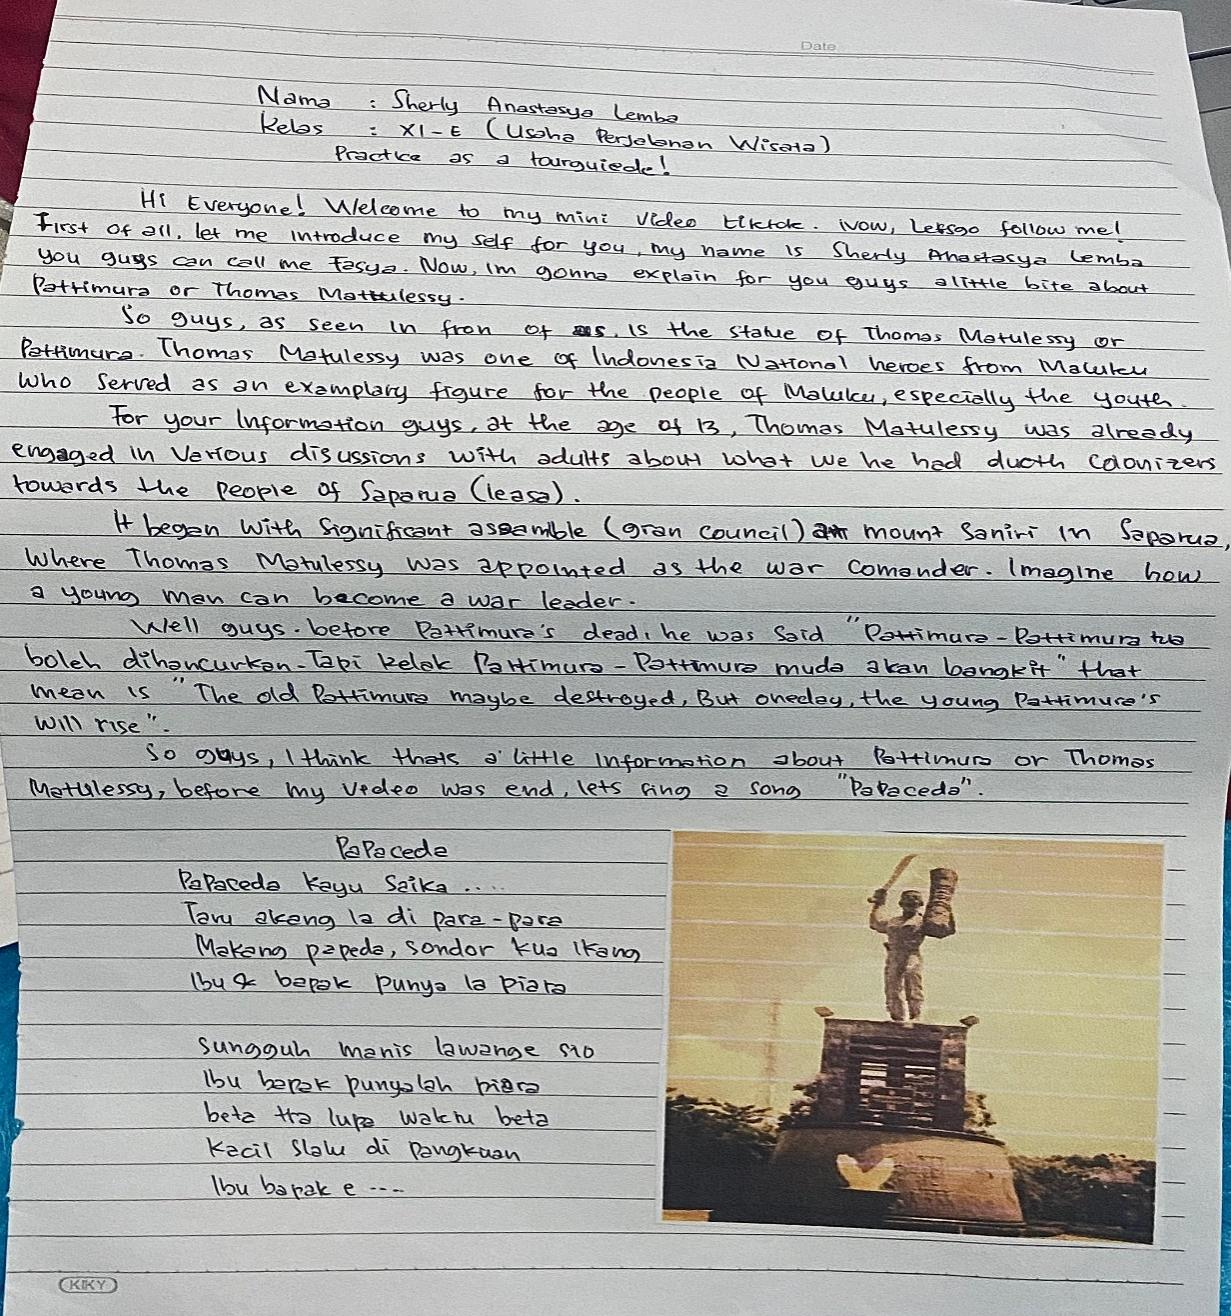 Date
Nama : Sherly Anastasya Lemba
Kelas : XI-E (Usaha Perjalanan Wisata)
Practice as a tourguiede!
Hi Everyone! Welcome to my mini video tiktok. Now, Letsgo follow me!
First of all, let me introduce my self for you, my name is Sherly Anastasya Lemba
you guys can call me Tasya. Now, Im gonna explain for you guys alittle bite about
Pattimura or Thomas Mattulessy.
So guys, as seen in fron of us, is the statue of Thomas Matulessy or
Pattimura. Thomas Matulessy was one of Indonesia National heroes from Maluku
who served as an examplary figure for the people of Maluku, especially the youth.
For your Information guys, at the age of 13, Thomas Matulessy was already
engaged in Various disussions with adults about what we he had ducth Colonizers
towards the people of Saparua (leasa).
It began with Significant assamble (gran council) at mount Saniri in Saparua,
Where Thomas Matulessy was appointed as the war Comander. Imagine how
a young man can become a war leader.
Well guys. before Pattimura's dead, he was Said "Pattimura-Pattimura tua
boleh dihancurkan-Tapi kelak Pattimura-Pattimura muda akan bangkit" that
mean is "The old Pattimura maybe destroyed, But oneday, the young Pattimura's
will rise".
So guys, I think thats a little Information about Pattimura or Thomas
Matulessy, before my vedeo was end, lets sing a song "Papaceda".
PaPaceda
PaPaceda kayu Saika ....
Taru akang la di para-para
Makang papeda, sondor kua Ikang
Ibu & bapak punya la piara
Sungguh manis lawange sio
Ibu bapak punyalah piara
beta tra lupa waktu beta
kacil Slalu di pangkuan
Ibu bapak e ....
KIKY